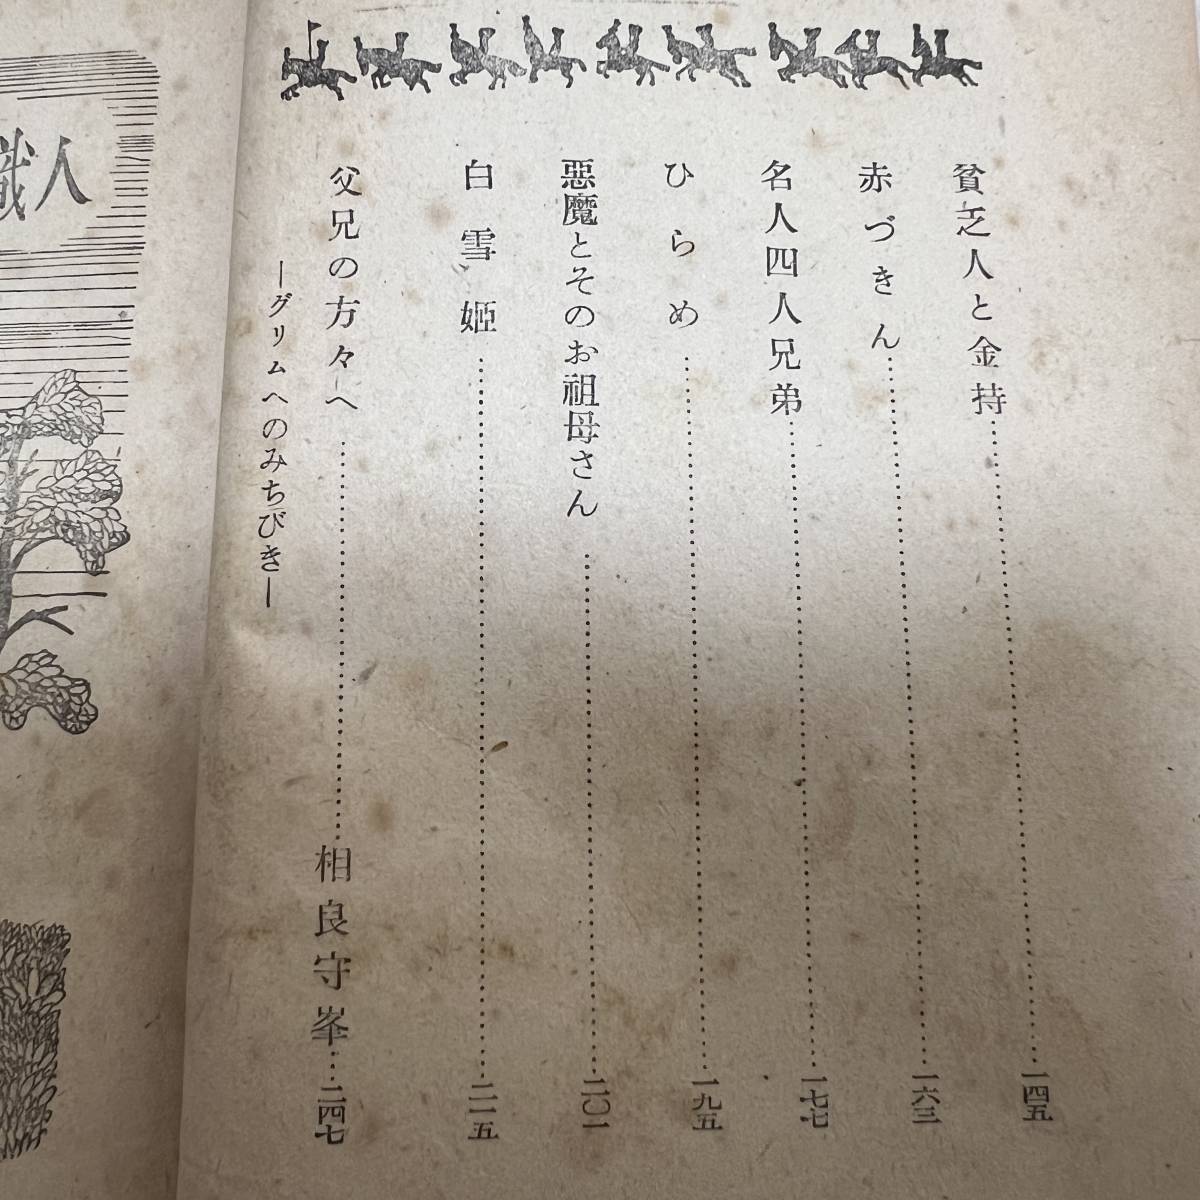 貧乏人と金持……一四五
赤づきん……一六三
名人四人兄弟……一七七
ひらめ……一九五
悪魔とそのお祖母さん……二〇一
白雪姫……二一五
父兄の方々へ……相良守峯……二四七
―グリムへのみちびき―
職人